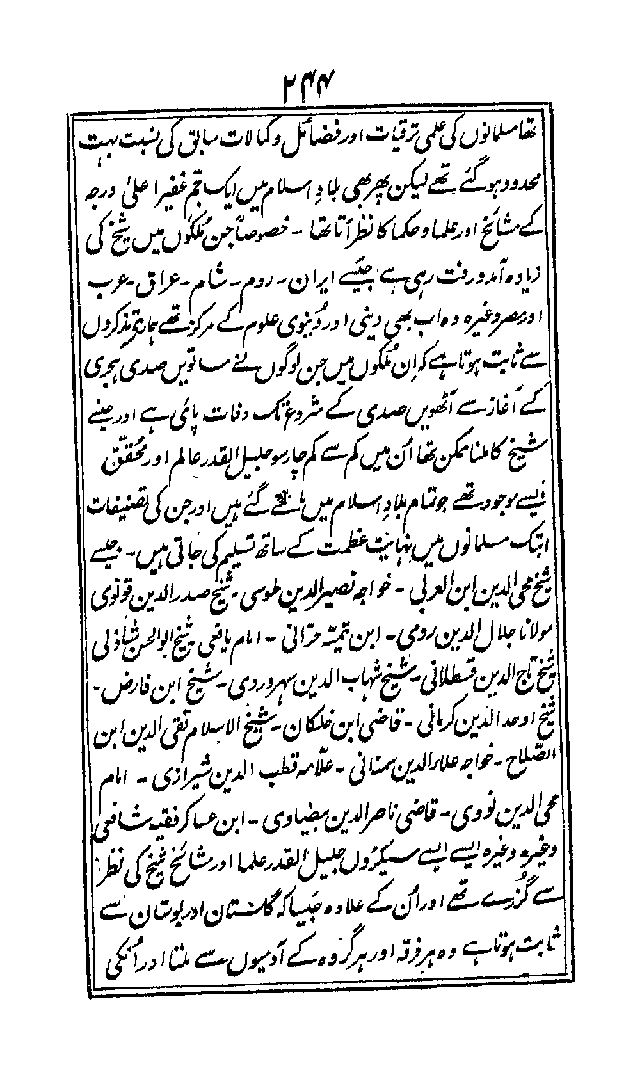 ۲۴۴
تھا مسلمانوں کی علمی ترقیات اور فضائل و کمالات سابق کی نسبت بہت
محدود ہوگئے تھے لیکن پھر بھی بلادِ اسلام میں ایک جمِ غفیر اعلیٰ درجہ
کے مشائخ اور علما و حکما کا نظر آتا تھا - خصوصاً جن ملکوں میں شیخ کی
زیادہ آمدورفت رہی ہے جیسے ایران - روم - شام - عراق - عرب
اور مصر وغیرہ وہ اب بھی دینی اور دُنیوی علوم کے مرکز تھے چنانچہ تذکروں
سے ثابت ہوتا ہے کہ اِن مُلکوں میں جن لوگوں نے ساتویں صدی ہجری
کے آغاز سے آٹھویں صدی کے شروع تک وفات پائی ہے اور جنسے
شیخ کا ملنا ممکن تھا اُن میں کم سے کم چار سو جلیل القدر عالم اور محقّق
ایسے موجود تھے جو تمام بلادِ اسلام میں مانے گئے ہیں اور جن کی تصنیفات
ابتک مسلمانوں میں نہایت عظمت کے ساتھ تسلیم کی جاتی ہیں - جیسے
شیخ محی الدین ابن العربی - خواجہ نصیر الدین طوسی - شیخ صدر الدین قونوی
مولانا جلال الدین رومی - ابن تیمیّہ حرّانی - امام یافعی - شیخ ابو الحسن شاذلی
شیخ تاج الدین قسطلانی - شیخ شہاب الدین سہروردی - شیخ ابن فارض -
شیخ اوحد الدین کرمانی - قاضی ابن خلکان - شیخ الاسلام تقی الدین ابن
الصّلاح - خواجہ علاء الدین سمنانی - علّامہ قطب الدین شیرازی - امام
محی الدین نووی - قاضی ناصر الدین بیضاوی - ابن عساکر فقیہ شافعی
وغیرہ وغیرہ ایسے ایسے سیکڑوں جلیل القدر علما اور مشائخ شیخ کی نظر
سے گُزرے تھے اور اُن کے علاوہ جیسا کہ گلستان اور بوستان سے
ثابت ہوتا ہے وہ ہر فرقہ اور ہر گروہ کے آدمیوں سے ملتا اور اُنکی